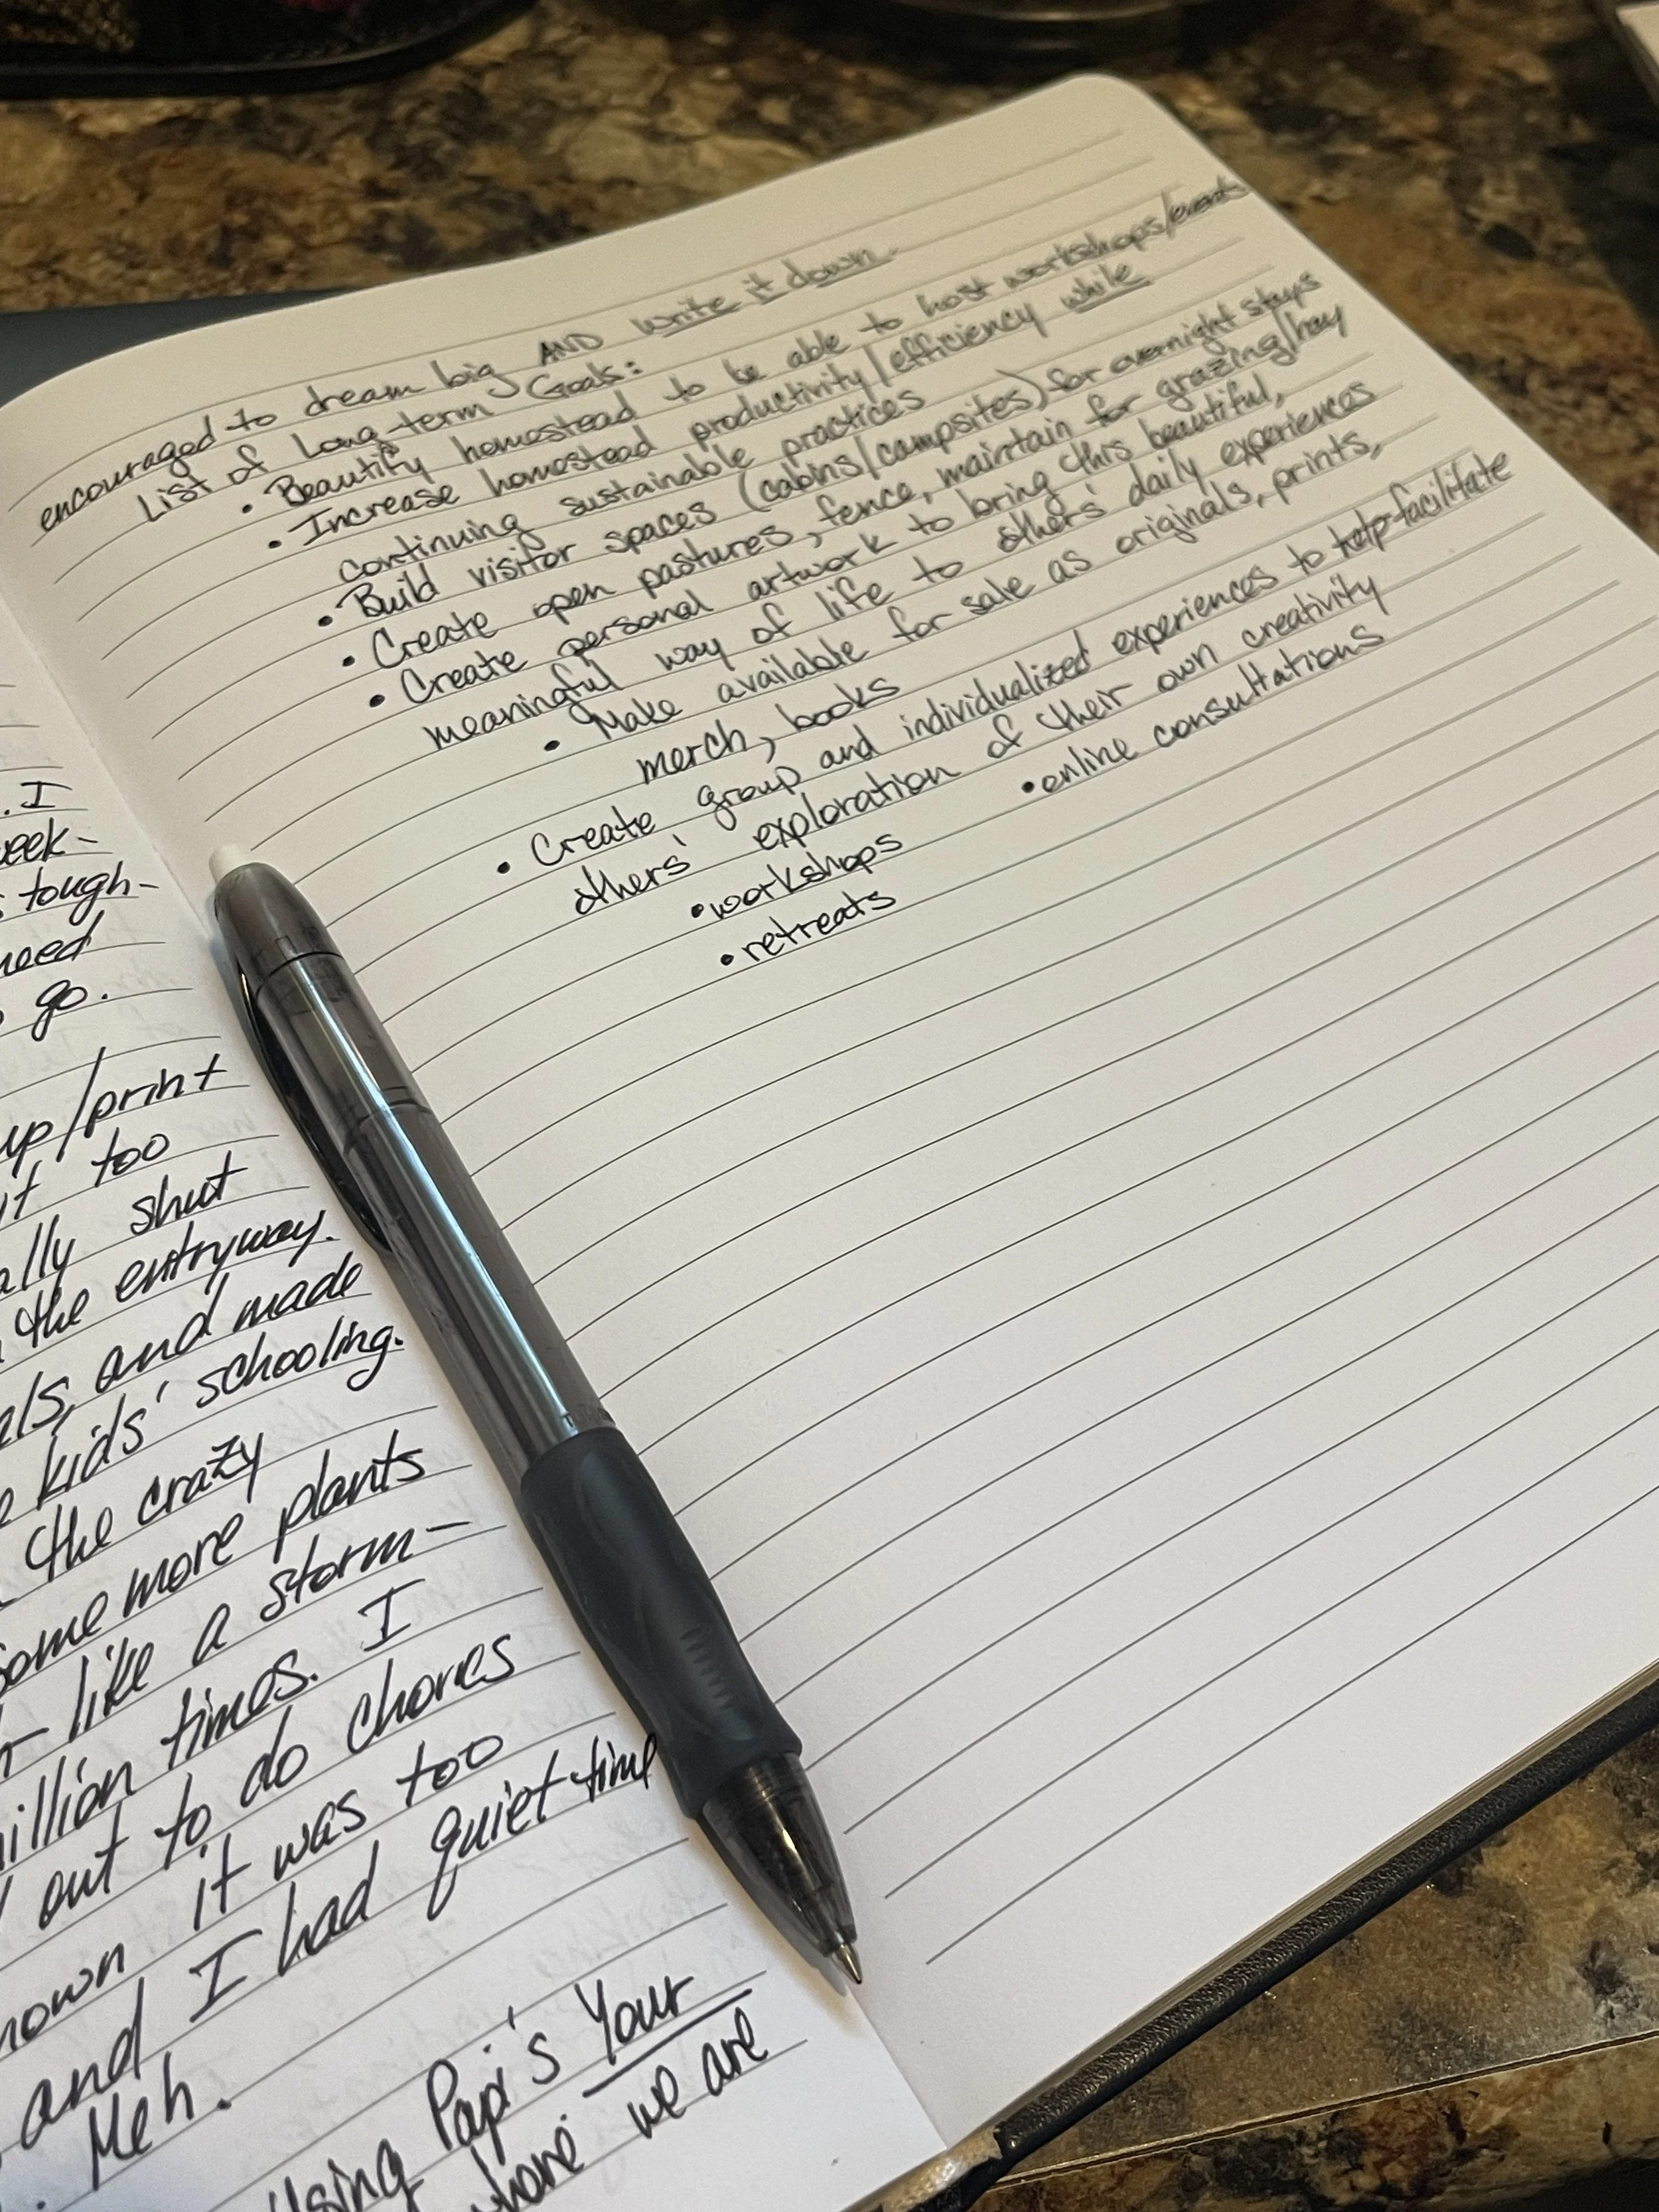 . I
eek-
s tough-
need
o go.
up/print
it too
ally shut
the entryway.
els, and made
kids' schooling.
the crazy
some more plants
like a storm-
illion times. I
out to do chores
nown it was too
and I had quiet time
. Meh.
Using Papi's Your
where we are
encouraged to dream big AND write it down.
List of Long-term Goals:
• Beautify homestead to be able to host workshops/events
• Increase homestead productivity/efficiency while
continuing sustainable practices
• Build visitor spaces (cabins/campsites) for overnight stays
• Create open pastures, fence, maintain for grazing/hay
• Create personal artwork to bring this beautiful,
meaningful way of life to others' daily experiences
• Make available for sale as originals, prints,
merch, books
• Create group and individualized experiences to help facilitate
others' exploration of their own creativity
• workshops • online consultations
• retreats